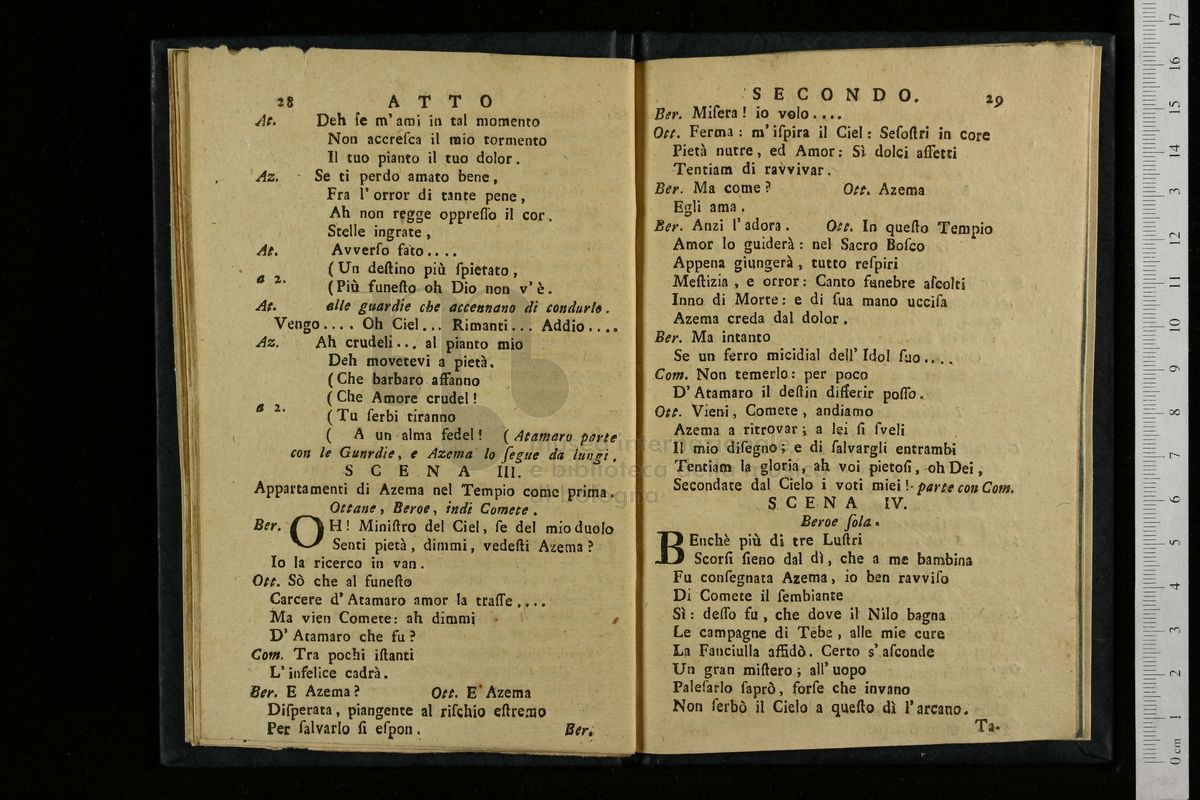 28 ATTO
At. Deh ſe m'ami in tal momento
Non accreſca il mio tormento
Il tuo pianto il tuo dolor.
Az. Se ti perdo amato bene,
Fra l'orror di tante pene,
Ah non regge oppreſſo il cor.
Stelle ingrate,
At. Avverſo fato....
(Un deſtino più ſpietato,
a 2.
(Più funeſto oh Dio non v'è.
At. alle guardie che accennano di condurlo.
Vengo.... Oh Ciel... Rimanti... Addio....
Az. Ah crudeli... al pianto mio
Deh movetevi a pietà.
(Che barbaro affanno
(Che Amore crudel!
a 2.
(Tu ſerbi tiranno
( A un alma fedel! (Atamaro parte
con le Gunrdie, e Azema lo ſegue da lungi.
SCENA III.
Appartamenti di Azema nel Tempio come prima.
Ottane, Beroe, indi Comete.
Ber. OH! Miniſtro del Ciel, ſe del mio duolo
Senti pietà, dimmi, vedeſti Azema?
Io la ricerco in van.
Ott. Sò che al funeſto
Carcere d'Atamaro amor la traſſe....
Ma vien Comete: ah dimmi
D'Atamaro che fu?
Com. Tra pochi iſtanti
L'infelice cadrà.
Ber. E Azema? Ott. E Azema
Diſperata, piangente al riſchio eſtremo
Per ſalvarlo ſi eſpon. Ber.
SECONDO. 29
Ber. Miſera! io volo....
Ott. Ferma: m'iſpira il Ciel: Seſoſtri in core
Pietà nutre, ed Amor: Sì dolci affetti
Tentiam di ravvivar.
Ber. Ma come? Ott. Azema
Egli ama.
Ber. Anzi l'adora. Ott. In queſto Tempio
Amor lo guiderà: nel Sacro Boſco
Appena giungerà, tutto reſpiri
Meſtizia, e orror: Canto funebre aſcolti
Inno di Morte: e di ſua mano ucciſa
Azema creda dal dolor.
Ber. Ma intanto
Se un ferro micidial dell'Idol ſuo....
Com. Non temerlo: per poco
D'Atamaro il deſtin differir poſſo.
Ott. Vieni, Comete, andiamo
Azema a ritrovar; a lei ſi ſveli
Il mio diſegno; e di ſalvargli entrambi
Tentiam la gloria, ah voi pietoſi, oh Dei,
Secondate dal Cielo i voti miei! parte con Com.
SCENA IV.
Beroe ſola.
BEnchè più di tre Luſtri
Scorſi ſieno dal dì, che a me bambina
Fu conſegnata Azema, io ben ravviſo
Di Comete il ſembiante
Sì: deſſo fu, che dove il Nilo bagna
Le campagne di Tebe, alle mie cure
La Fanciulla affidò. Certo s'aſconde
Un gran miſtero; all'uopo
Paleſarlo ſaprò, forſe che invano
Non ſerbò il Cielo a queſto dì l'arcano.
Ta-
museo internazionale
e biblioteca
di bologna
0 cm 1 2 3 4 5 6 7 8 9 10 11 12 13 14 15 16 17